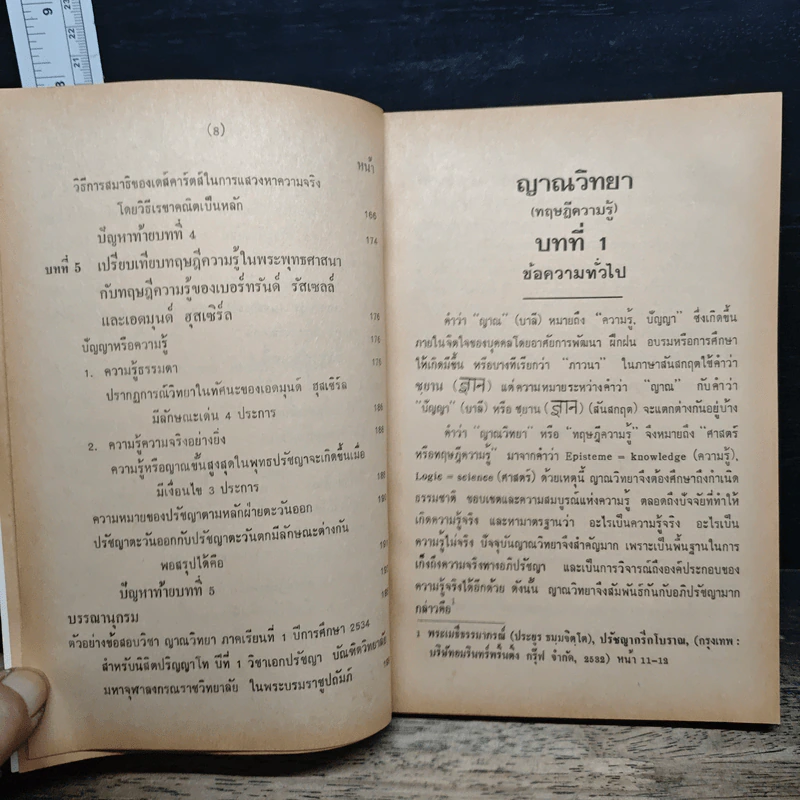 (8)
หน้า
วิธีการสมาธิของเดส์คาร์ตส์ในการแสวงหาความจริง
โดยวิธีเรขาคณิตเป็นหลัก 166
ปัญหาท้ายบทที่ 4 174
บทที่ 5 เปรียบเทียบทฤษฎีความรู้ในพระพุทธศาสนา
กับทฤษฎีความรู้ของเบอร์ทรันด์ รัสเซลล์
และเอดมุนด์ ฮุสเซิร์ล 176
ปัญญาหรือความรู้ 176
1. ความรู้ธรรมดา 176
ปรากฏการณ์วิทยาในทัศนะของเอดมุนด์ ฮุสเซิร์ล
มีลักษณะเด่น 4 ประการ
2. ความรู้ความจริงอย่างยิ่ง
ความรู้หรือญาณขั้นสูงสุดในพุทธปรัชญาจะเกิดขึ้นเมื่อ
มีเงื่อนไข 3 ประการ
ความหมายของปรัชญาตามหลักฝ่ายตะวันออก
ปรัชญาตะวันออกกับปรัชญาตะวันตกมีลักษณะต่างกัน
พอสรุปได้คือ
ปัญหาท้ายบทที่ 5
บรรณานุกรม
ตัวอย่างข้อสอบวิชา ญาณวิทยา ภาคเรียนที่ 1 ปีการศึกษา 2534
สำหรับนิสิตปริญญาโท ปีที่ 1 วิชาเอกปรัชญา บัณฑิตวิทยาลัย
มหาจุฬาลงกรณราชวิทยาลัย ในพระบรมราชูปถัมภ์
ญาณวิทยา
(ทฤษฎีความรู้)
บทที่ 1
ข้อความทั่วไป
คำว่า "ญาณ" (บาลี) หมายถึง "ความรู้, ปัญญา" ซึ่งเกิดขึ้น
ภายในจิตใจของบุคคลโดยอาศัยการพัฒนา ฝึกฝน อบรมหรือการศึกษา
ให้เกิดมีขึ้น หรือบางทีเรียกว่า "ภาวนา" ในภาษาสันสกฤตใช้คำว่า
ชฺยาน (ज्ञान) แต่ความหมายระหว่างคำว่า "ญาณ" กับคำว่า
"ปัญญา" (บาลี) หรือ ชฺยาน (ज्ञान) (สันสกฤต) จะแตกต่างกันอยู่บ้าง
คำว่า "ญาณวิทยา" หรือ "ทฤษฎีความรู้" จึงหมายถึง "ศาสตร์
หรือทฤษฎีความรู้" มาจากคำว่า Episteme = knowledge (ความรู้),
Logic = science (ศาสตร์) ด้วยเหตุนี้ ญาณวิทยาจึงต้องศึกษาถึงกำเนิด
ธรรมชาติ ขอบเขตและความสมบูรณ์แห่งความรู้ ตลอดถึงปัจจัยที่ทำให้
เกิดความรู้จริง และหามาตรฐานว่า อะไรเป็นความรู้จริง อะไรเป็น
ความรู้ไม่จริง ปัจจุบันญาณวิทยาจึงสำคัญมาก เพราะเป็นพื้นฐานในการ
เก็งถึงความจริงทางอภิปรัชญา และเป็นการวิจารณ์ถึงองค์ประกอบของ
ความรู้จริงได้อีกด้วย ดังนั้น ญาณวิทยาจึงสัมพันธ์กันกับอภิปรัชญามาก
กล่าวคือ¹
1 พระเมธีธรรมาภรณ์ (ประยูร ธมฺมจิตฺโต), ปรัชญากรีกโบราณ, (กรุงเทพ :
บริษัทอมรินทร์พริ้นติ้ง กรุ๊ฟ จำกัด, 2532) หน้า 11-12